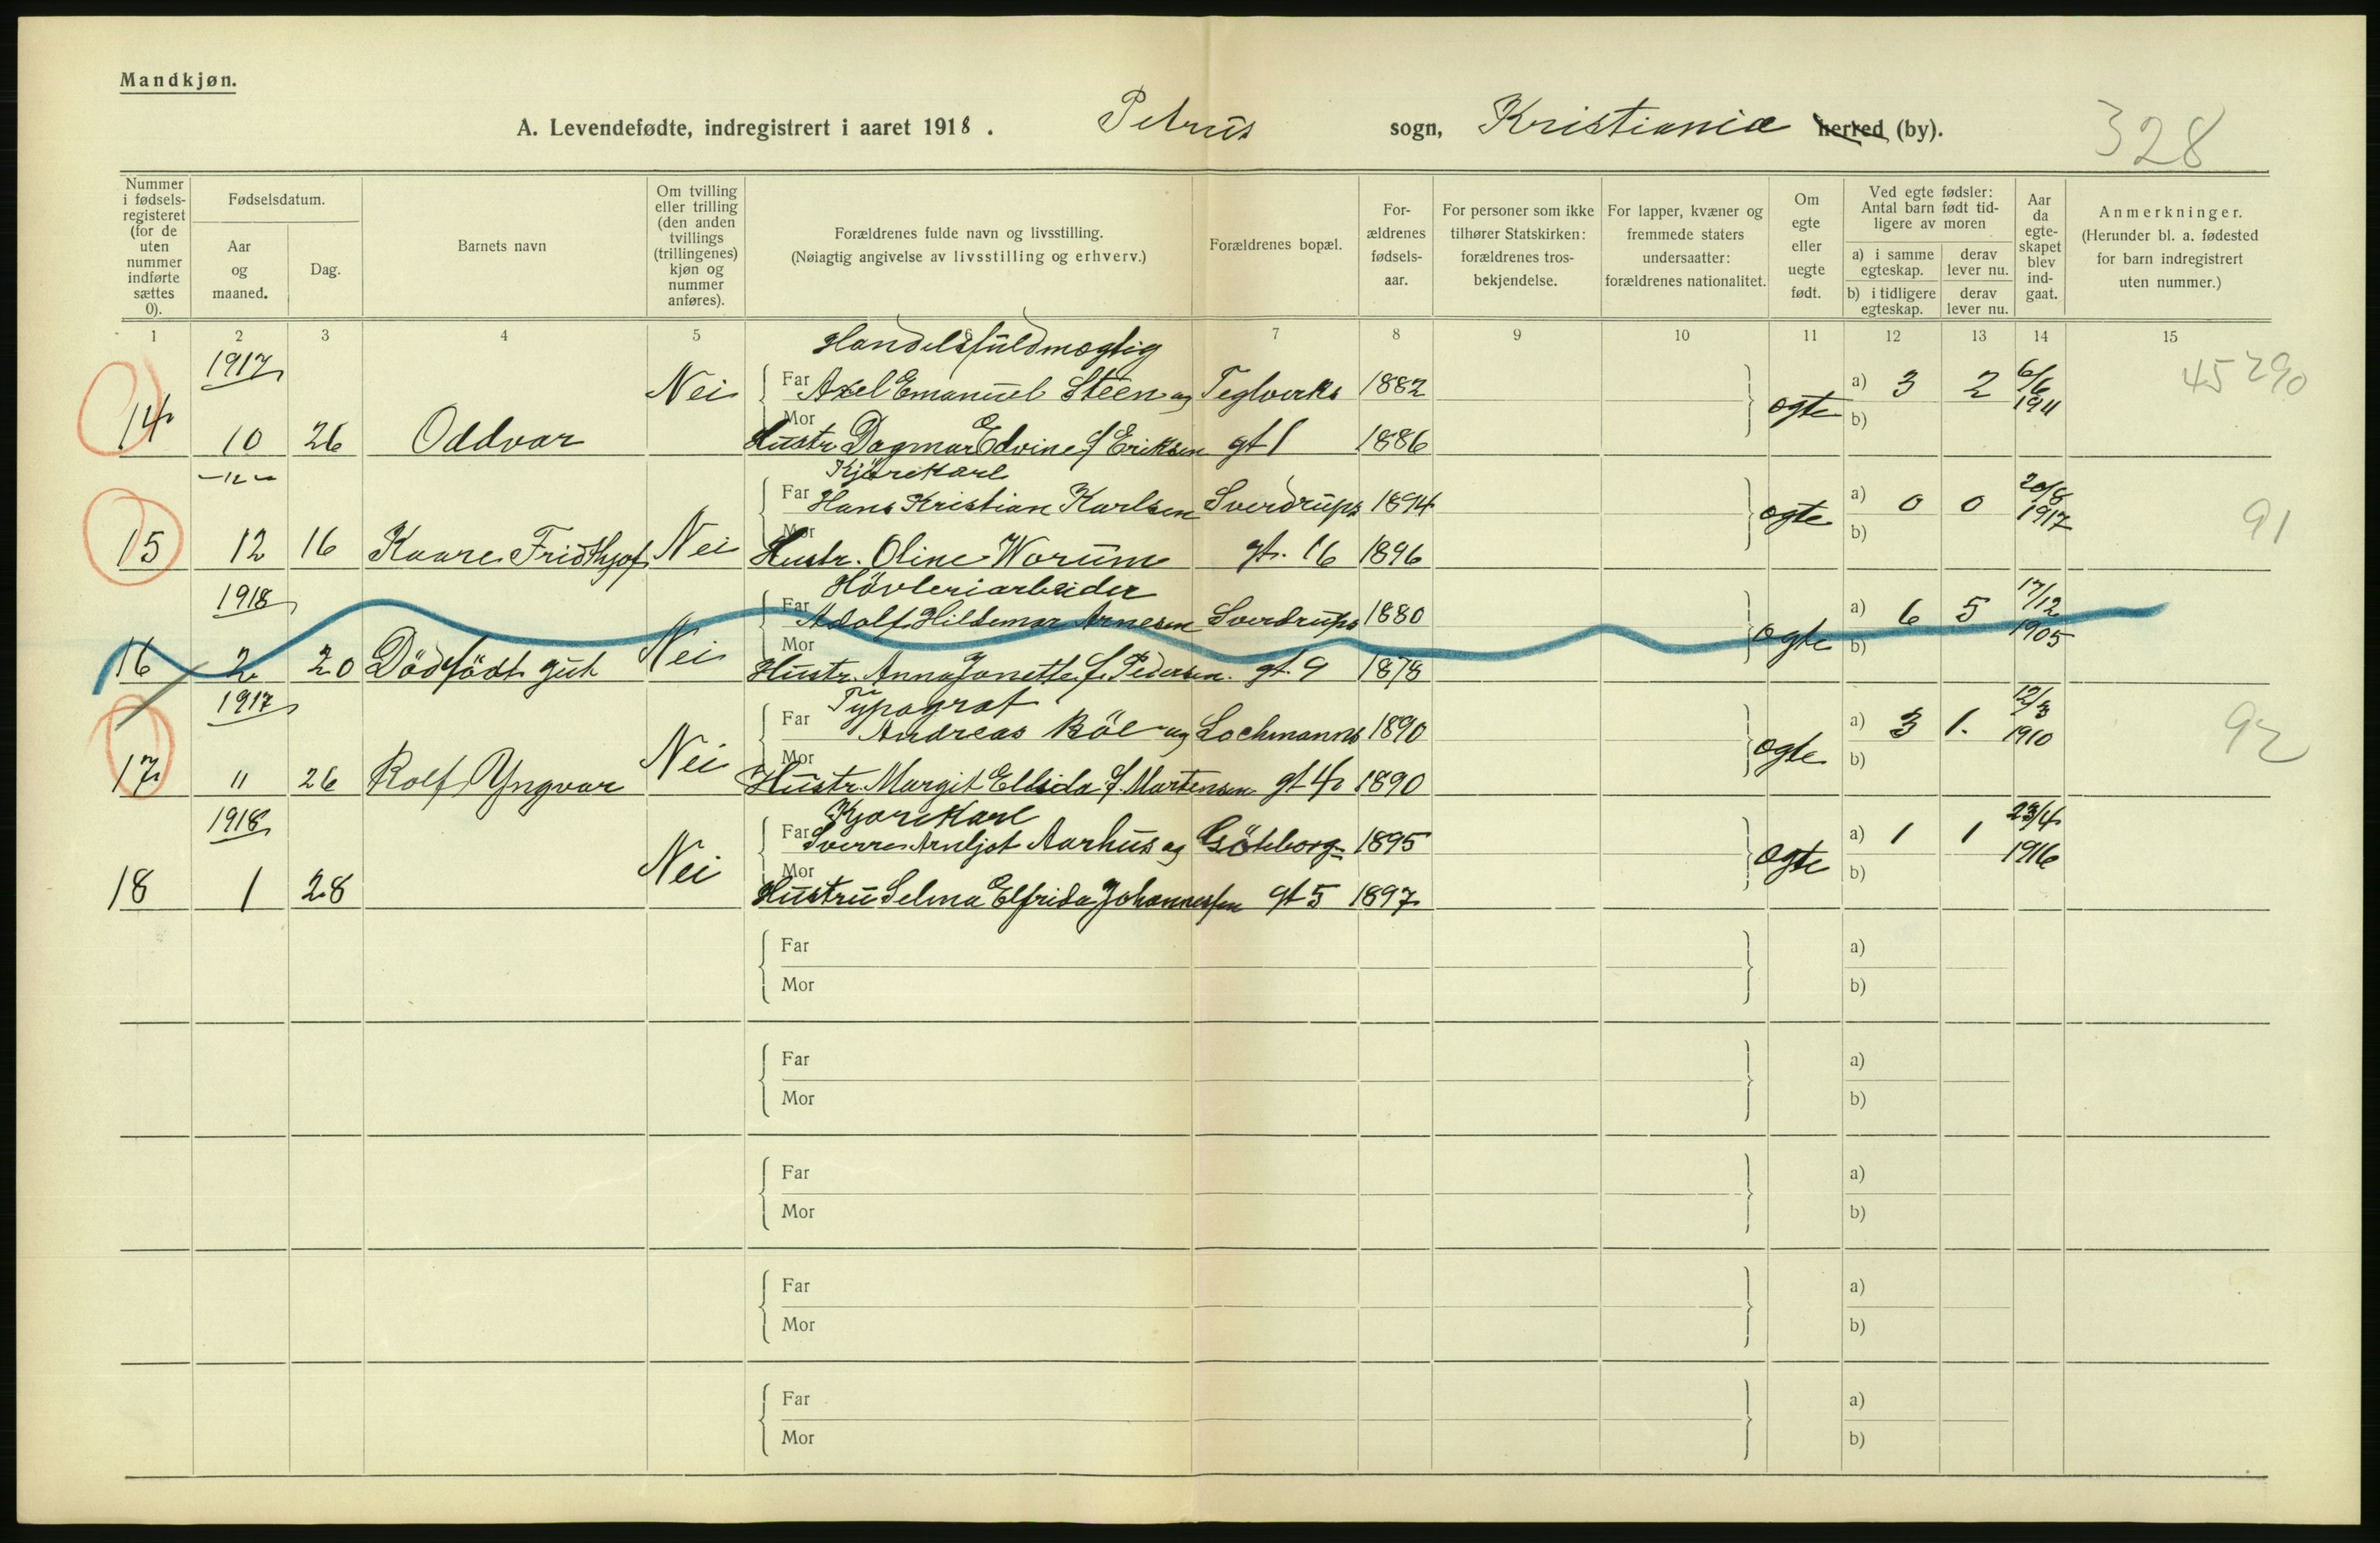 Mandkjøn.
A. Levendefødte, indregistrert i aaret 1918. Petrus sogn, Kristiania herred (by). 328
Nummer i fødsels-registeret (for de uten nummer indførte sættes 0).
Fødselsdatum.
Aar og maaned.
Dag.
Barnets navn
Om tvilling eller trilling (den anden tvillings (trillingenes) kjøn og nummer anføres).
Forældrenes fulde navn og livsstilling.
(Nøiagtig angivelse av livsstilling og erhverv.)
Forældrenes bopæl.
For-ældrenes fødsels-aar.
For personer som ikke tilhører Statskirken: forældrenes tros-bekjendelse.
For lapper, kvæner og fremmede staters undersaatter: forældrenes nationalitet.
Om egte eller uegte født.
Ved egte fødsler: Antal barn født tid-ligere av moren
a) i samme egteskap. derav lever nu.
b) i tidligere egteskap. derav lever nu.
Aar da egte-skapet blev ind-gaat.
Anmerkninger.
(Herunder bl. a. fødested for barn indregistrert uten nummer.)
1 2 3 4 5 6 7 8 9 10 11 12 13 14 15
1917 Handelsfuldmægtig
Nei Far Axel Emanuel Steen og Teglverks 1882 a) 3 2 6/6 1911 45290
14 10 26 Oddvar Mor Hustr. Dagmar Edvine f Eriksen gt 1 1886 egte b)
-12- Kjørekarl
Far Hans Kristian Karlsen Sverdrups 1894 a) 0 0 20/8 1917 91
15 12 16 Kaare Fridthjof Nei Mor Hustr. Oline Worum gt. 16 1896 egte b)
1918 Hövleriarbeider
Far Adolf Hildemar Arnesen Sverdrups 1880 a) 6 5 17/12 1905
16 2 20 Dödfödt gut Nei Mor Hustr. Anna Janette f. Pedersen gt. 9 1878 egte b)
1917 Typograf
Far Andreas Böe og Lochmanns 1890 a) 3 1. 12/3 1910 92
17 11 26 Rolf Yngvar Nei Mor Hustr. Margit Ellida f. Martensen gt 4 1890 egte b)
1918 Kjørekarl
Far Sverre Arnljot Aarhus og Göteborg- 1895 a) 1 1 23/4 1916
18 1 28 Nei Mor Hustru Selma Elfrida Johannessen gt 5 1897 egte b)
Far a)
Mor b)
Far a)
Mor b)
Far a)
Mor b)
Far a)
Mor b)
Far a)
Mor b)